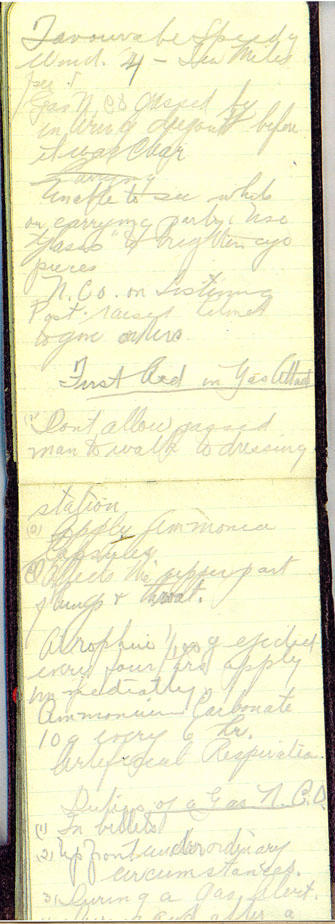 Favourable Speedy
Wind. 4 - Ten Miles
per
Gas N.CO gassed by
entering dugout before
it was clear
Carrying
Unable to see while
on carrying party. Use
"Glasso" to brighten eye
pieces
N.Co. on Listening
Post. raised helmet
to give orders
First Aid in Gas Attack
(1) Dont allow gassed
man to walk to dressing
station
(2) Apply Ammonia
Capsules
(3) Affects the upper part
of lungs & throat.
Atrophine 1/100 g
every four hrs apply
immediatly.
Ammonium Carbonate
10 g every 6 hr.
Artefical Respiration.
Duties of a Gas N.C.O
(1) In billets
(2) Up front under ordinary
circumstances.
3) During a Gas Alert.
and after a